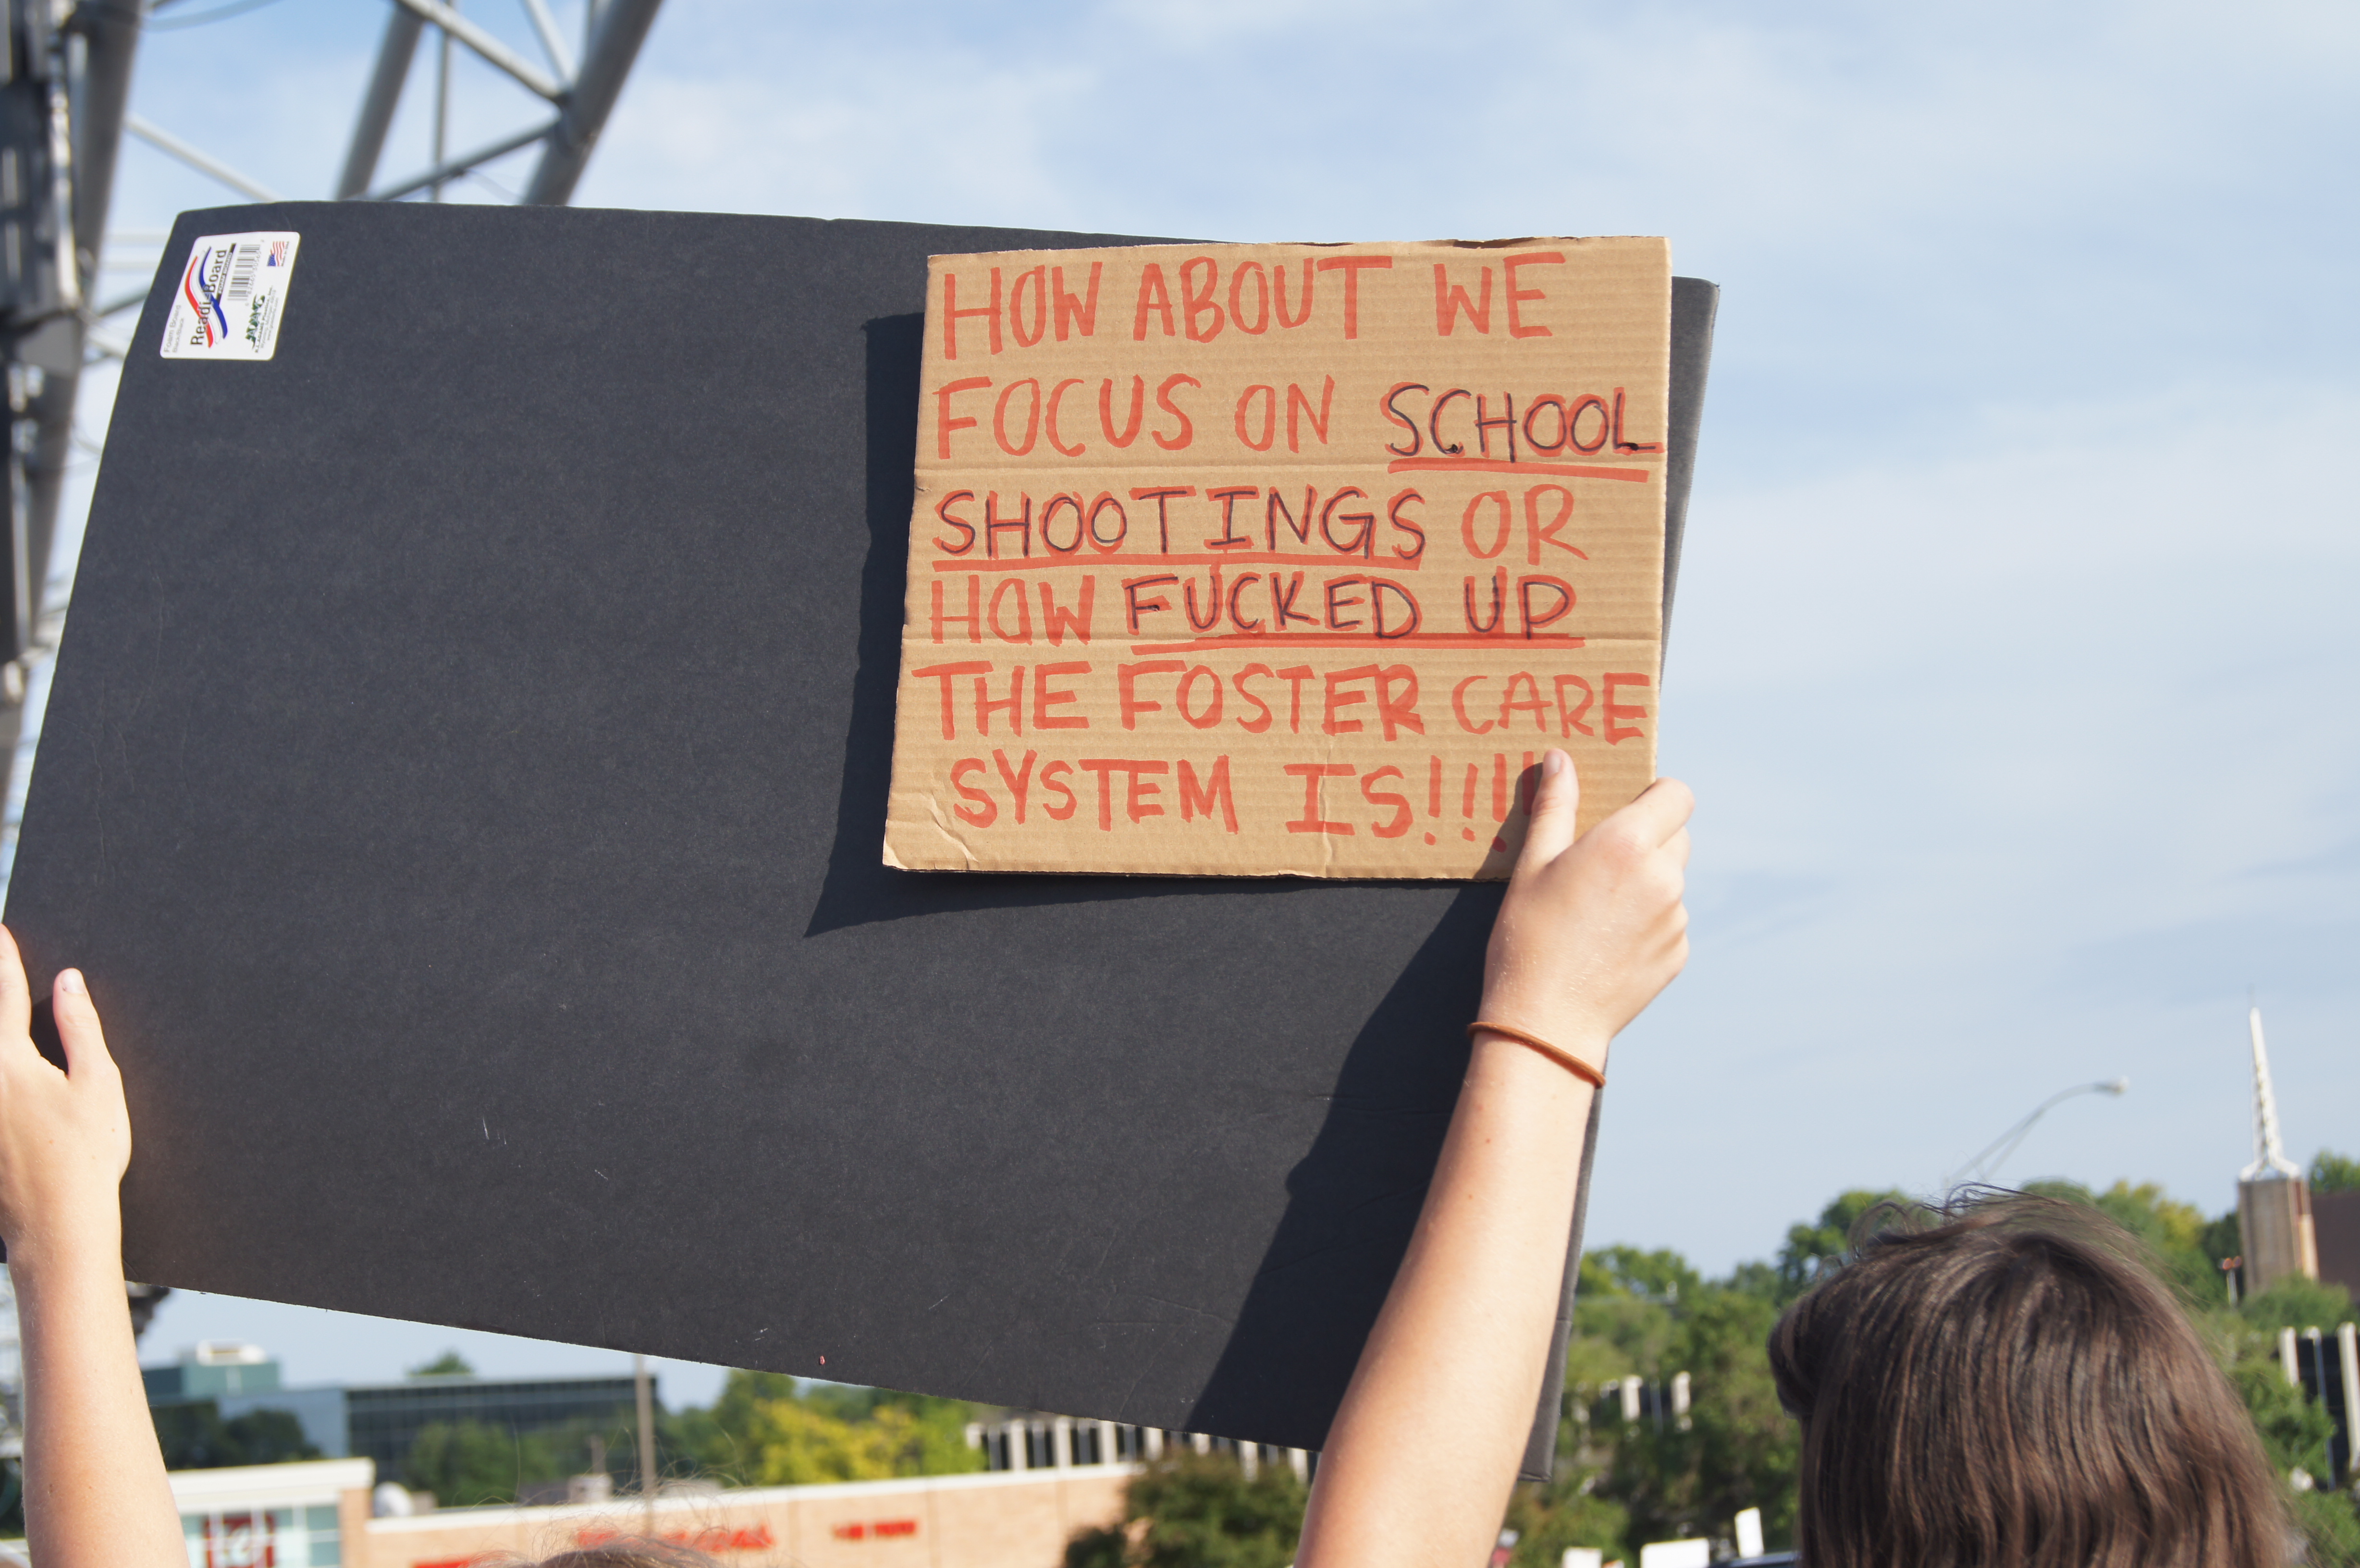 HOW ABOUT WE
FOCUS ON SCHOOL
SHOOTINGS OR
HOW FUCKED UP
THE FOSTER CARE
SYSTEM IS!!!!
Readi-Board
Foam Board